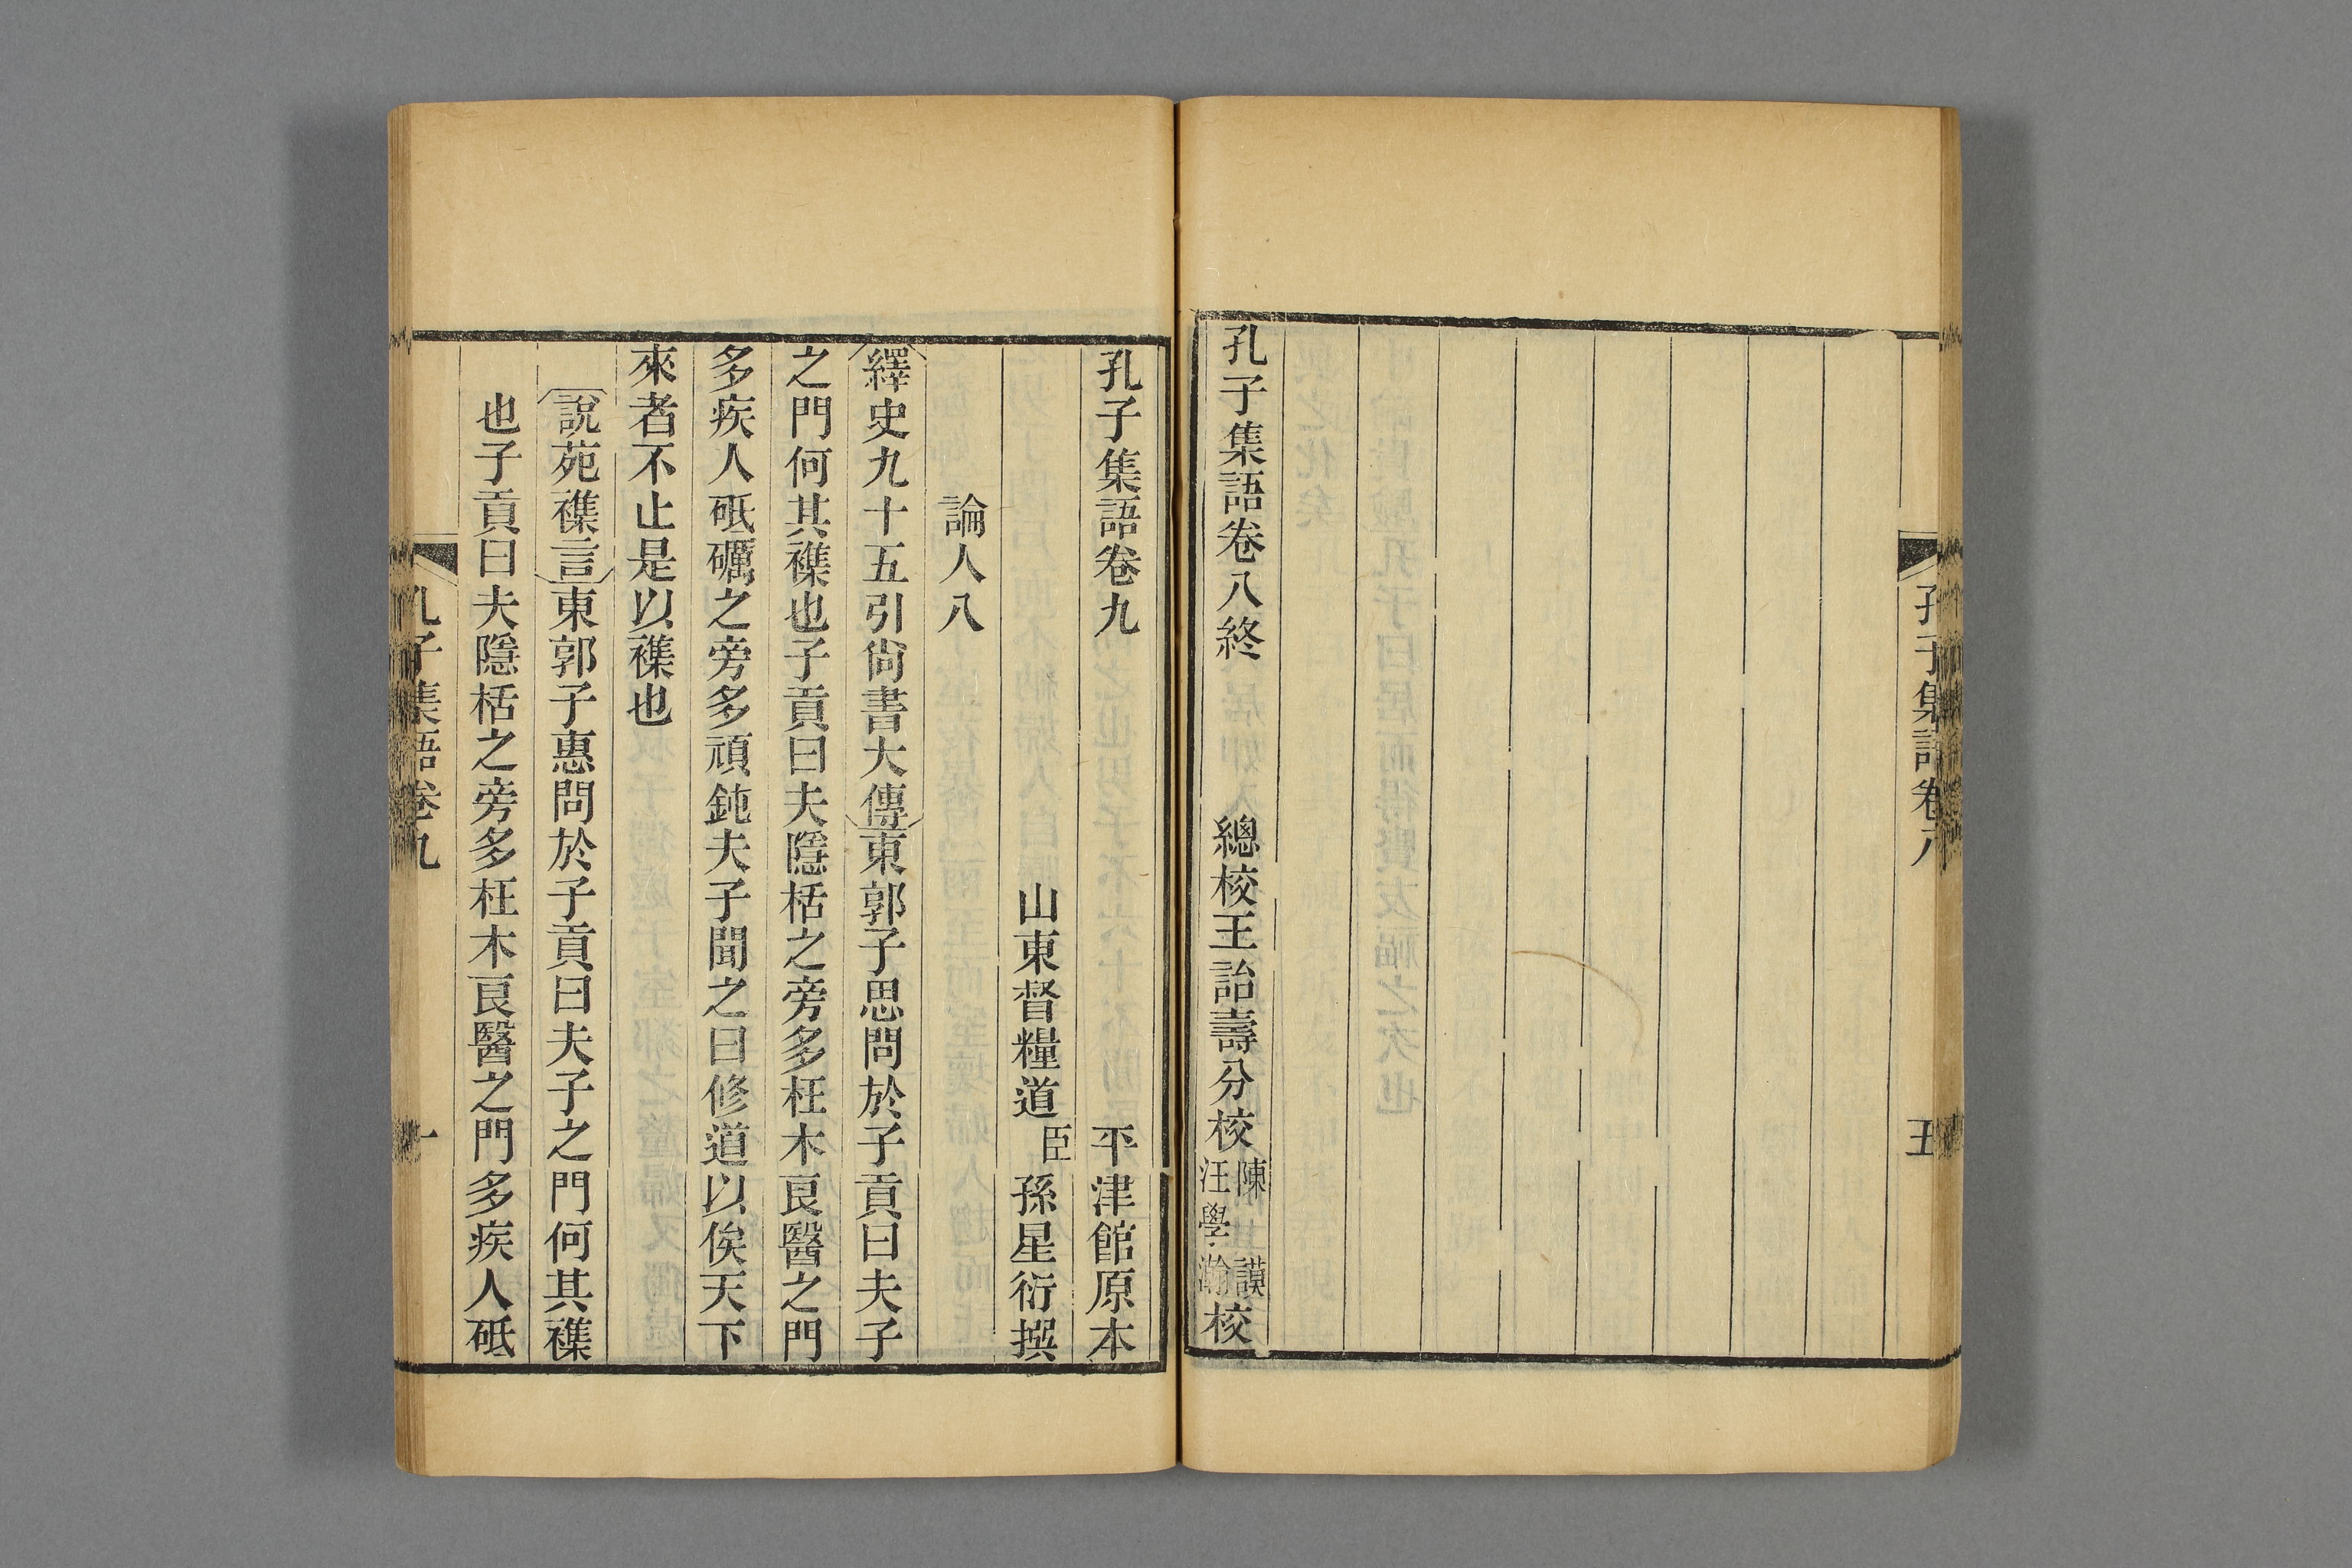 孔子集語卷八
五
孔子集語卷八終 總校王詒壽分校陳其謨汪學瀚校
孔子集語卷九 平津館原本
山東督糧道臣孫星衍撰
論人八
繹史九十五引尙書大傳東郭子思問於子貢曰夫子
之門何其襍也子貢曰夫隱栝之旁多枉木良醫之門
多疾人砥礪之旁多頑鈍夫子聞之曰修道以俟天下
來者不止是以襍也
說苑襍言東郭子惠問於子貢曰夫子之門何其襍
也子貢曰夫隱栝之旁多枉木良醫之門多疾人砥
孔子集語卷九
一